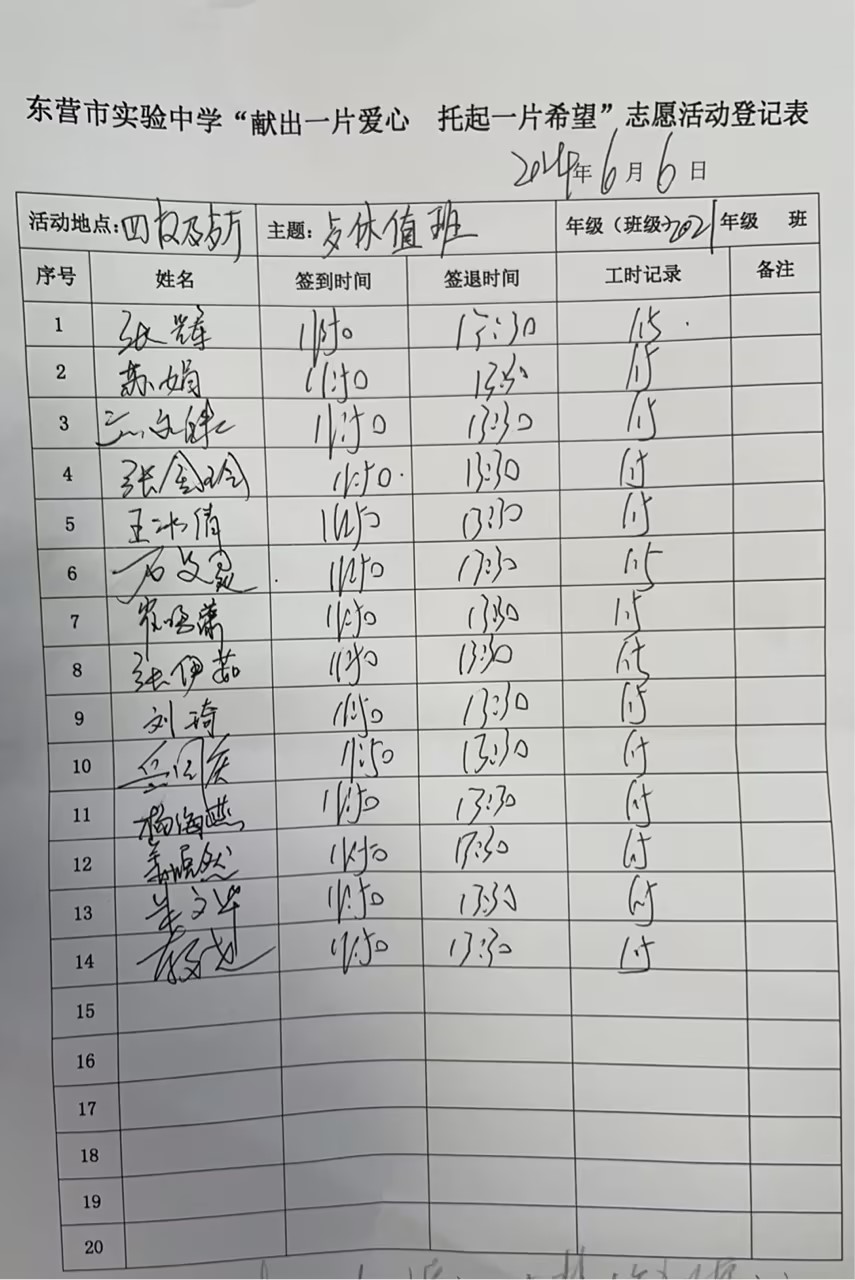 东营市实验中学“献出一片爱心 托起一片希望”志愿活动登记表
2024年6月6日
活动地点: 主题:午休值班 年级(班级)2021年级 班
序号 姓名 签到时间 签退时间 工时记录 备注
1 张辉 11:50 13:30 1.5
2 苏娟 11:50 13:30 1.5
3 11:50 13:30 1.5
4 张金玲 11:50 13:30 1.5
5 王冰倩 11:50 13:30 1.5
6 石文 11:50 13:30 1.5
7 11:50 13:30 1.5
8 张伊茹 11:50 13:30 1.5
9 刘琦 11:50 13:30 1.5
10 11:50 13:30 1.5
11 杨海燕 11:50 13:30 1.5
12 11:50 13:30 1.5
13 朱文华 11:50 13:30 1.5
14 11:50 13:30 1.5
15
16
17
18
19
20